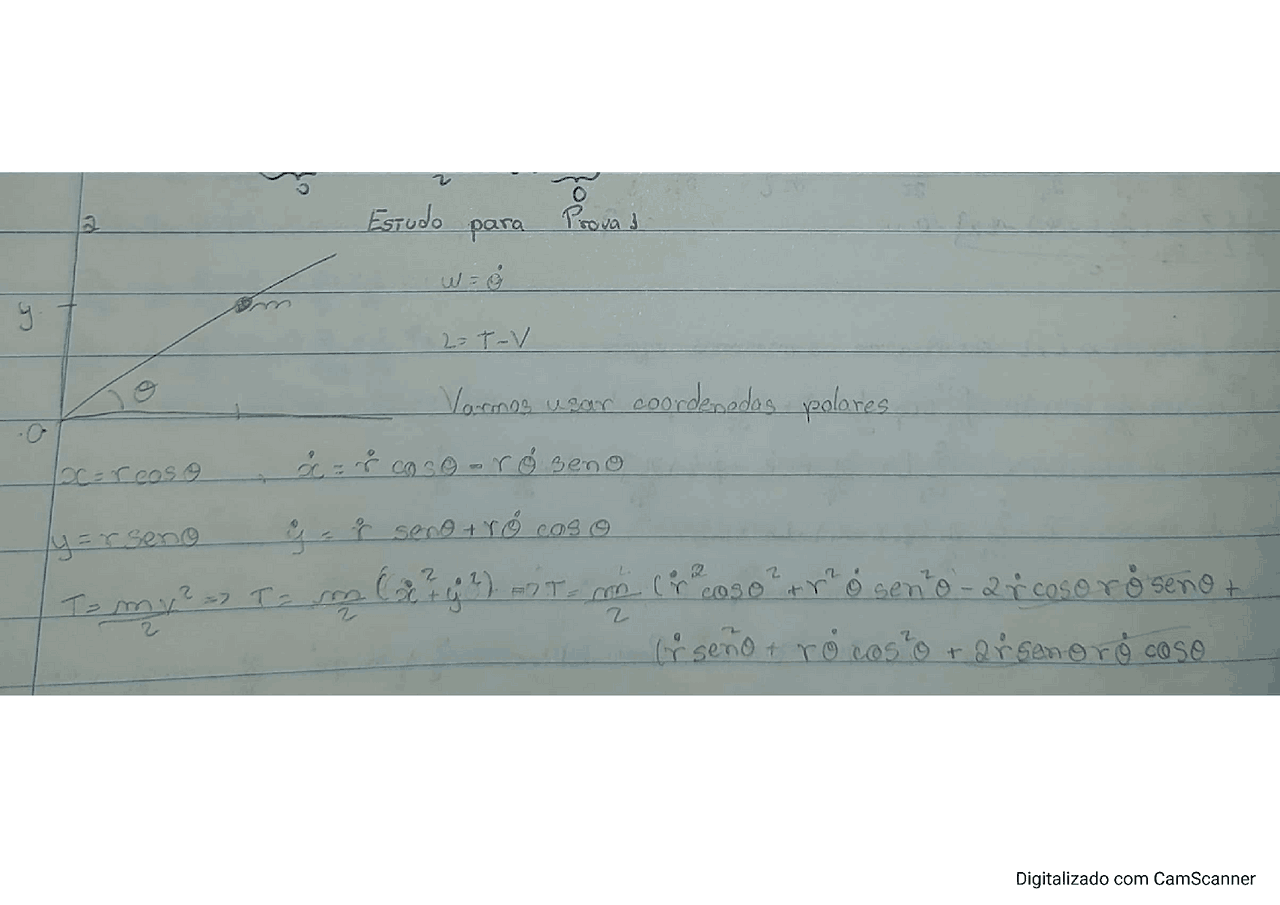 2
Estudo para Prova 1
w = θ̇
y
m
L = T - V
θ
Vamos usar coordenadas polares
0
x = r cos θ , ẋ = ṙ cos θ - r θ̇ sen θ
y = r sen θ ẏ = ṙ sen θ + r θ̇ cos θ
T = mv²/2 => T = m/2 (ẋ² + ẏ²) => T = m/2 (ṙ² cos θ² + r² θ̇ sen² θ - 2 ṙ cos θ r θ̇ sen θ +
(ṙ sen² θ + r θ̇ cos² θ + 2 ṙ sen θ r θ̇ cos θ
Digitalizado com CamScanner